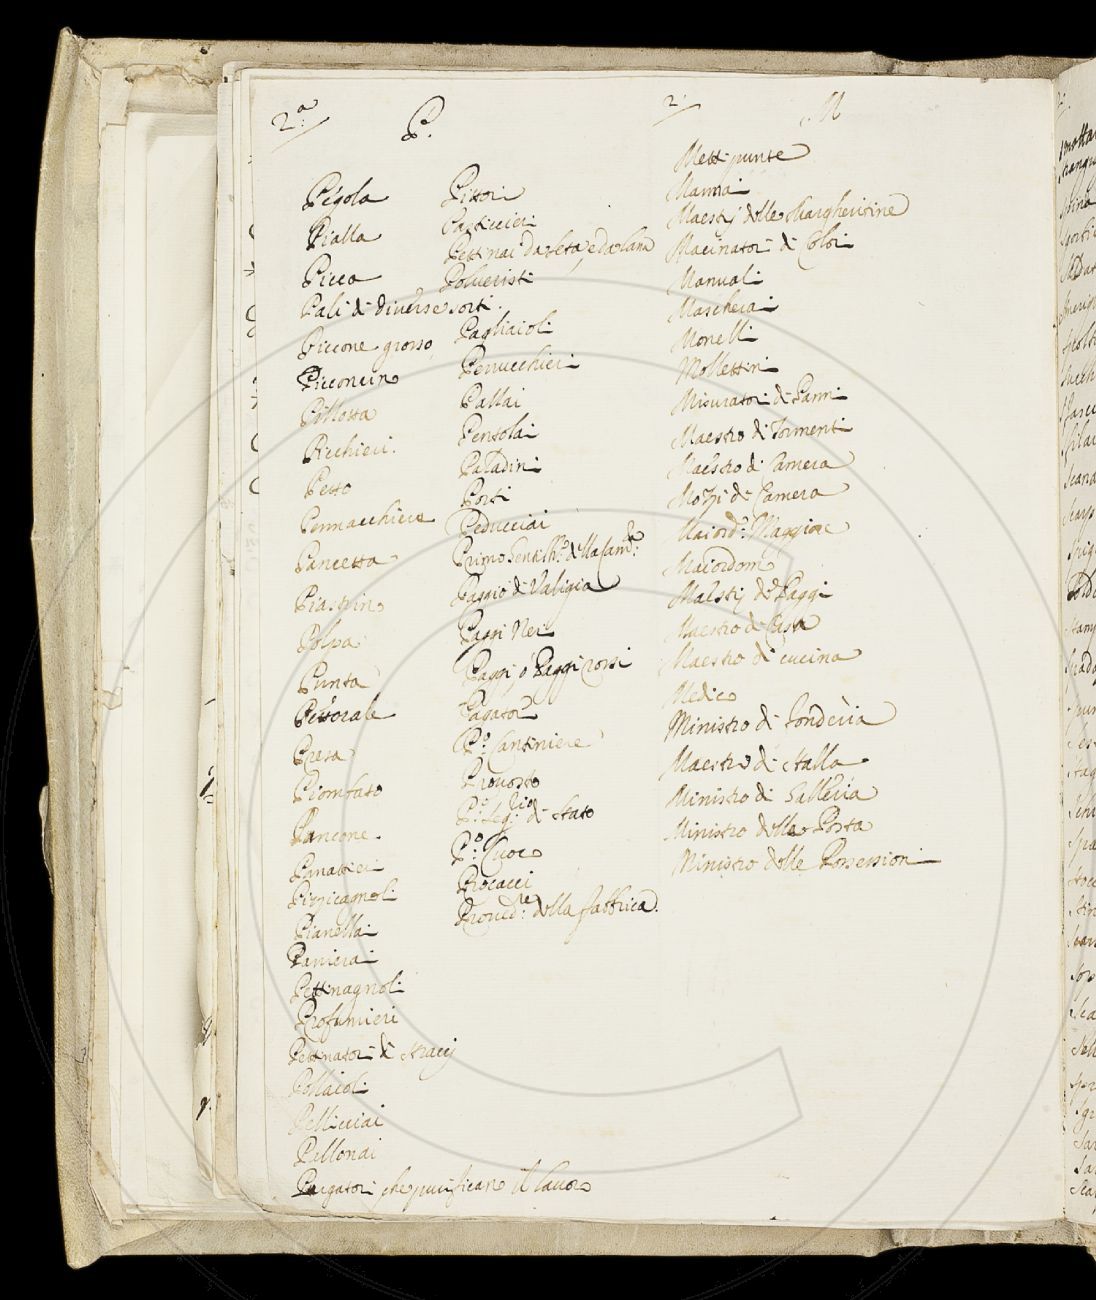 2.a
P.
Pegola
Pialla
Picca
Pali di diverse sorti.
Piccone grosso
Picconcino
Pillotta
Picchieri.
Petto
Pennacchiera
Pancetta
Piastrino
Polpa
Punta
Pettorale
Presa
Piombato
Pancone.
Panattieri
Pizzicagnoli
Pianellai
Panierai
Pettinagnoli
Profumieri
Pettinatori di stracci
Pollaioli
Pellicciai
Pellonai
Purgatori che purificano il lavoro
Pittori
Pasticcieri
Pettinai da seta, e da lana
Polveristi
Pagliaioli
Perrucchieri
Pallai
Pentolai
Paladini
Porti
Peducciai
Primo Gentilh.º della Cam.ra
Paggio di Valigia
Paggi Neri
Paggi ò Paggi rossi
Pagatore
P.º Cantiniere
Provosto
P.º Seg.rio di Stato
P.º Cuoco
Procacci
Proved.re della fabbrica.
2.
M
Mettipunte
Mannai
Maestrj delle Margheritine
Macinatori di Colori
Manuali
Mascherai
Monelli
Mollettini
Misuratori di Panni
Maestro di Tormenti
Maestro di Camera
Mozzi di Camera
Maiord.º Maggiore
Maiordomo
Maestrj de Paggi
Maestro di Casa
Maestro di cucina
Medico
Ministro di fonderia
Maestro di stalla
Ministro di Galleria
Ministro della Posta
Ministro delle Possessioni